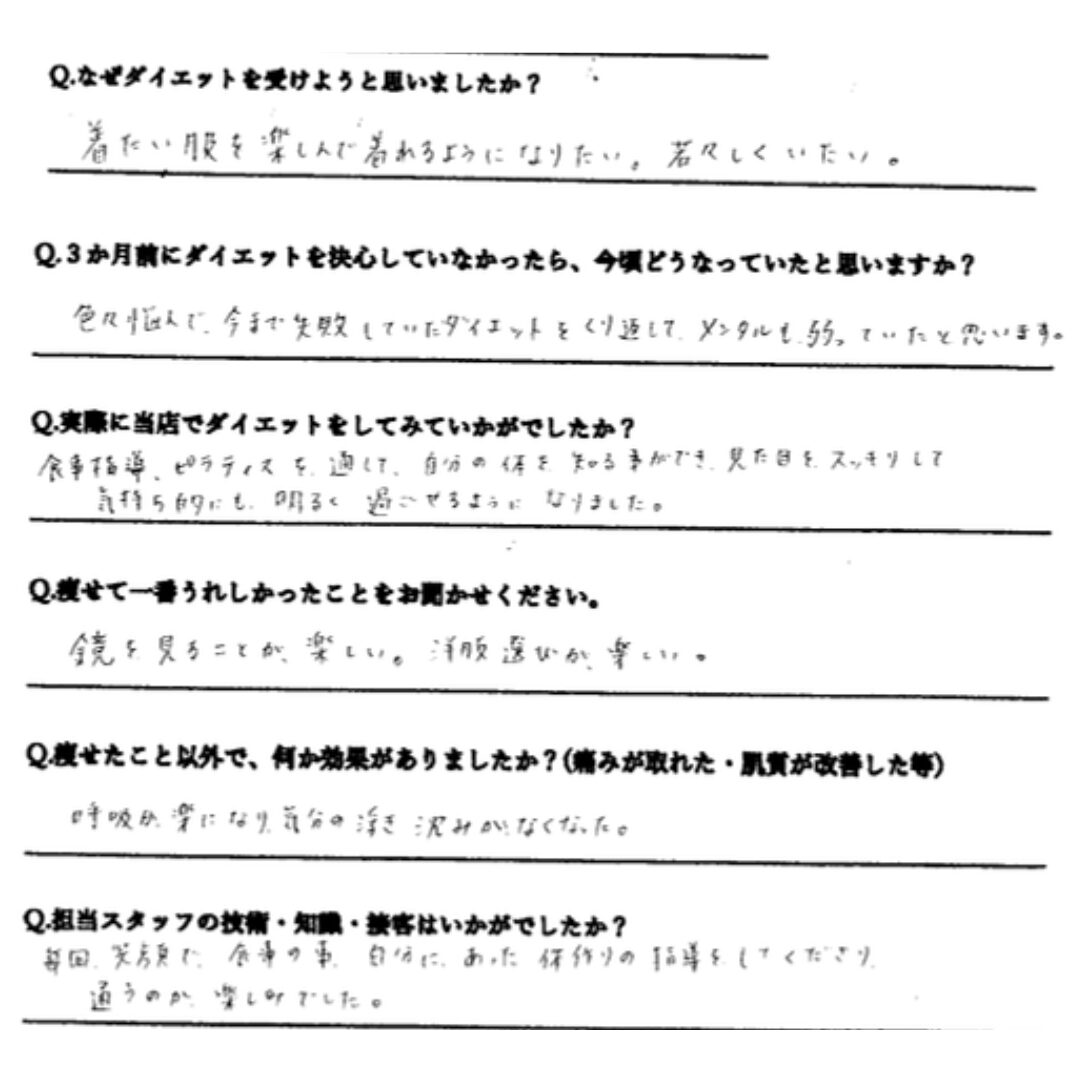 Q.なぜダイエットを受けようと思いましたか？
着たい服を楽しんで着れるようになりたい。若々しくいたい。
Q.３か月前にダイエットを決心していなかったら、今頃どうなっていたと思いますか？
色々悩んで、今まで失敗していたダイエットをくり返して、メンタルも弱っていたと思います。
Q.実際に当店でダイエットをしてみていかがでしたか？
食事指導、ピラティスを通して、自分の体を知る事ができ、見た目をスッキリして
気持ち的にも明るく過ごせるようになりました。
Q.痩せて一番うれしかったことをお聞かせください。
鏡を見ることが楽しい。洋服選びが楽しい。
Q.痩せたこと以外で、何か効果がありましたか？(痛みが取れた・肌質が改善した等)
呼吸が楽になり気分の浮き沈みがなくなった。
Q.担当スタッフの技術・知識・接客はいかがでしたか？
毎回、笑顔で、食事の事、自分にあった体作りの指導をしてくださり、
通うのが楽しみでした。